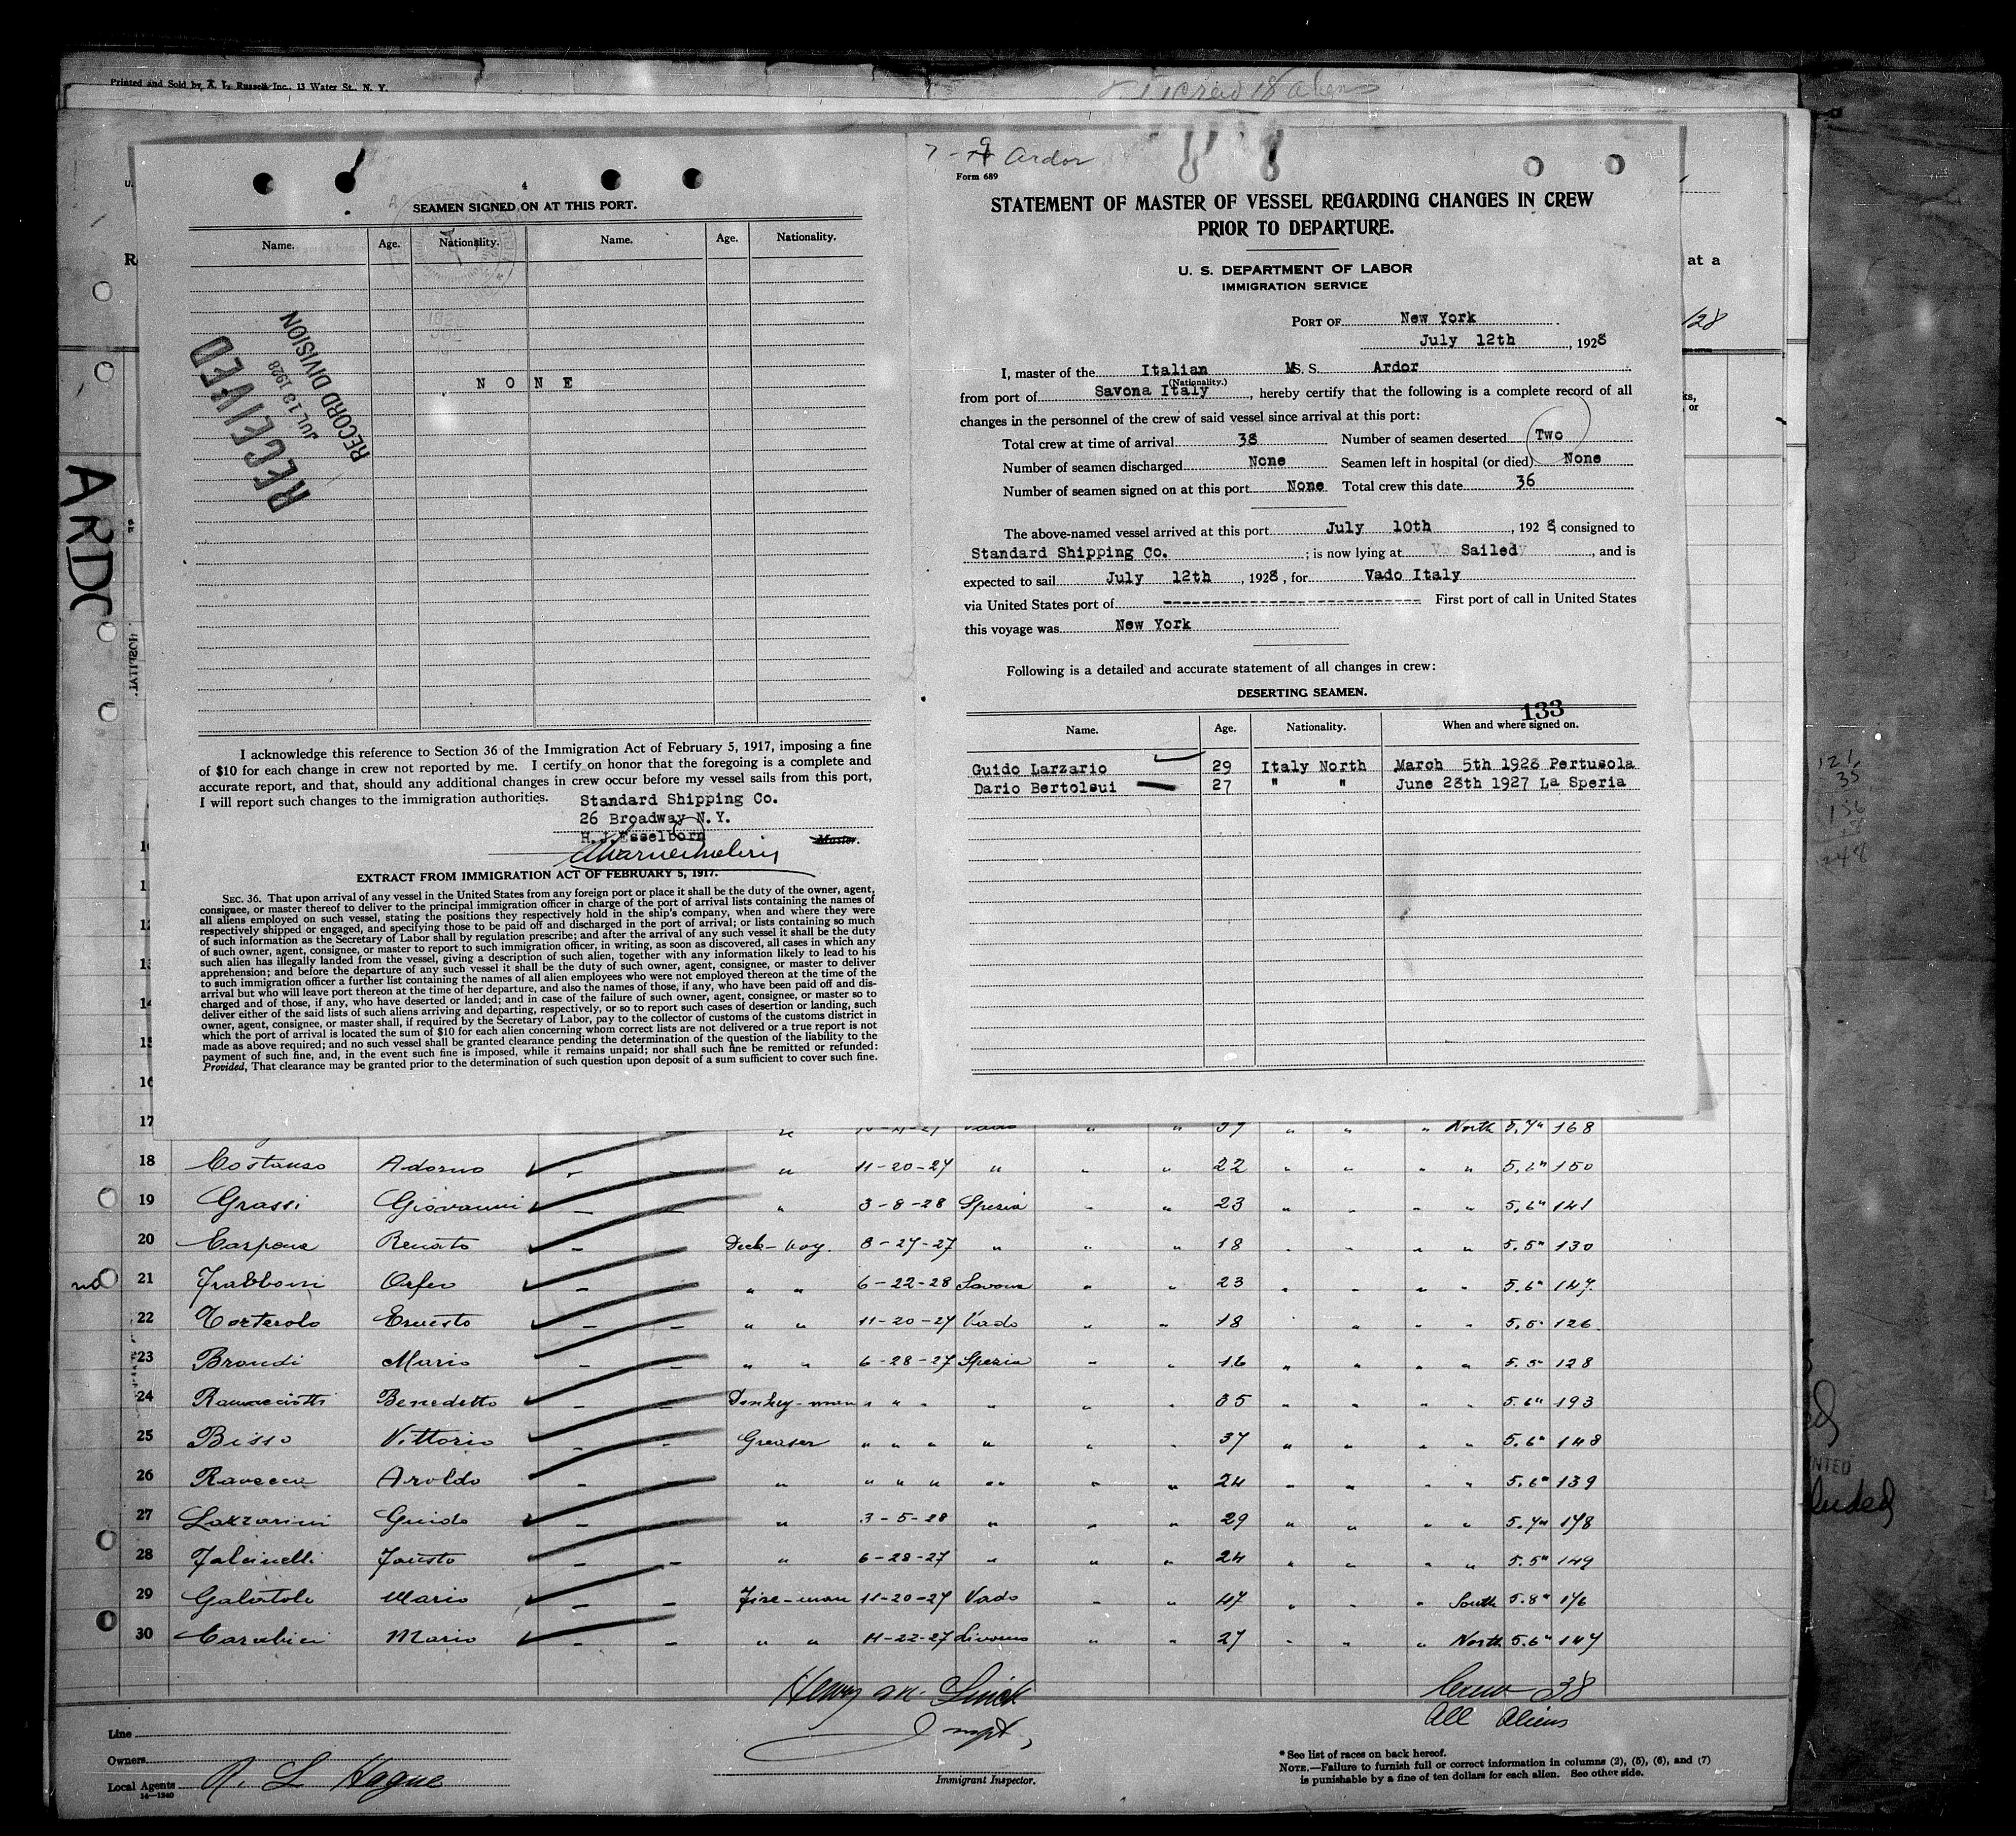 Printed and Sold by A. L. Russell Inc., 13 Water St., N. Y.
crew 18 aliens
4
SEAMEN SIGNED ON AT THIS PORT.
Name. Age. Nationality. Name. Age. Nationality.
NONE
RECEIVED
JUL 13 1928
RECORD DIVISION
I acknowledge this reference to Section 36 of the Immigration Act of February 5, 1917, imposing a fine
of $10 for each change in crew not reported by me. I certify on honor that the foregoing is a complete and
accurate report, and that, should any additional changes in crew occur before my vessel sails from this port,
I will report such changes to the immigration authorities.
Standard Shipping Co.
26 Broadway N.Y.
H.J.Esselborn
Master.
EXTRACT FROM IMMIGRATION ACT OF FEBRUARY 5, 1917.
SEC. 36. That upon arrival of any vessel in the United States from any foreign port or place it shall be the duty of the owner, agent,
consignee, or master thereof to deliver to the principal immigration officer in charge of the port of arrival lists containing the names of
all aliens employed on such vessel, stating the positions they respectively hold in the ship's company, when and where they were
respectively shipped or engaged, and specifying those to be paid off and discharged in the port of arrival; or lists containing so much
of such information as the Secretary of Labor shall by regulation prescribe; and after the arrival of any such vessel it shall be the duty
of such owner, agent, consignee, or master to report to such immigration officer, in writing, as soon as discovered, all cases in which any
such alien has illegally landed from the vessel, giving a description of such alien, together with any information likely to lead to his
apprehension; and before the departure of any such vessel it shall be the duty of such owner, agent, consignee, or master to deliver
to such immigration officer a further list containing the names of all alien employees who were not employed thereon at the time of the
arrival but who will leave port thereon at the time of her departure, and also the names of those, if any, who have been paid off and dis-
charged and of those, if any, who have deserted or landed; and in case of the failure of such owner, agent, consignee, or master so to
deliver either of the said lists of such aliens arriving and departing, respectively, or so to report such cases of desertion or landing, such
owner, agent, consignee, or master shall, if required by the Secretary of Labor, pay to the collector of customs of the customs district in
which the port of arrival is located the sum of $10 for each alien concerning whom correct lists are not delivered or a true report is not
made as above required; and no such vessel shall be granted clearance pending the determination of the question of the liability to the
payment of such fine, and, in the event such fine is imposed, while it remains unpaid; nor shall such fine be remitted or refunded:
Provided, That clearance may be granted prior to the determination of such question upon deposit of a sum sufficient to cover such fine.
7 - 9 Ardor
Form 689
STATEMENT OF MASTER OF VESSEL REGARDING CHANGES IN CREW
PRIOR TO DEPARTURE.
U. S. DEPARTMENT OF LABOR
IMMIGRATION SERVICE
PORT OF New York
July 12th, 1928
I, master of the Italian MS. S. Ardor
(Nationality.)
from port of Savona Italy, hereby certify that the following is a complete record of all
changes in the personnel of the crew of said vessel since arrival at this port:
Total crew at time of arrival 38 Number of seamen deserted Two
Number of seamen discharged None Seamen left in hospital (or died) None
Number of seamen signed on at this port None Total crew this date 36
The above-named vessel arrived at this port July 10th, 1928, consigned to
Standard Shipping Co.; is now lying at Sailed, and is
expected to sail July 12th, 1928, for Vado Italy
via United States port of ---------------------------- First port of call in United States
this voyage was New York
Following is a detailed and accurate statement of all changes in crew:
DESERTING SEAMEN.
133
Name. Age. Nationality. When and where signed on.
Guido Larzario 29 Italy North March 5th 1928 Pertusola
Dario Bertolsui 27 " " June 28th 1927 La Speria
at a
128
ARDO
17 North 5.7" 168
18 Costanso Adorno " 11-20-27 " " " 22 " " " " 5.6" 150
19 Grassi Giovanni " 3-8-28 Spezia " " 23 " " " " 5.6" 141
20 Carpena Renato Deck-boy. 8-27-27 " " " 18 " " " " 5.5" 130
no 21 Frabboni Orfeo " " 6-22-28 Savona " " 23 " " " " 5.6" 147.
22 Torterolo Ernesto " " 11-20-27 Vado " " 18 " " " 5.5" 126.
23 Brondi Mario " " 6-28-27 Spezia " " 16 " " " " 5.5" 128
24 Benedetto Donkey-man " " " " " " 35 " " " " 5.6" 193
25 Bisso Vittorio Greaser " " " " " " 37 " " " " 5.6" 148
26 Ravecca Aroldo " " " " " " " 24 " " " " 5.6" 139
27 Lazzarini Guido " 3-5-28 " " " 29 " " " " 5.7" 178
28 Falcinelli Fausto " 6-28-27 " " " 24 " " " " 5.5" 149
29 Galatolo Mario Fire-man 11-20-27 Vado " " 47 " " " South 5.8" 176
30 Mario " " 11-22-27 Livorno " " 27 " " " North 5.6" 147
Henry M. Linick
Inspt,
Immigrant Inspector.
Crew 38
All Aliens
Line
Owners
Local Agents R. L. Hague
14—1240
* See list of races on back hereof.
NOTE.—Failure to furnish full or correct information in columns (2), (5), (6), and (7)
is punishable by a fine of ten dollars for each alien. See other side.